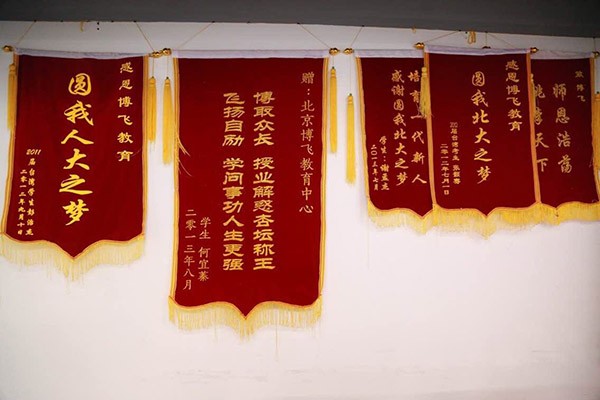 感恩博飞教育
圆我人大之梦
2011届台湾学生彭
二零一二年九月十日
赠：北京博飞教育中心
博取众长 授业解惑杏坛称王
飞扬自励 学问事功人生更强
学生 何宜蓁
二零一三年八月
培育一代新人
感谢圆我北大之梦
学生：谢孟
二零一三年七月
感恩博飞教育
圆我北大之梦
届台湾考生 张
二零一二年七月一日
博飞
师恩浩荡
天下